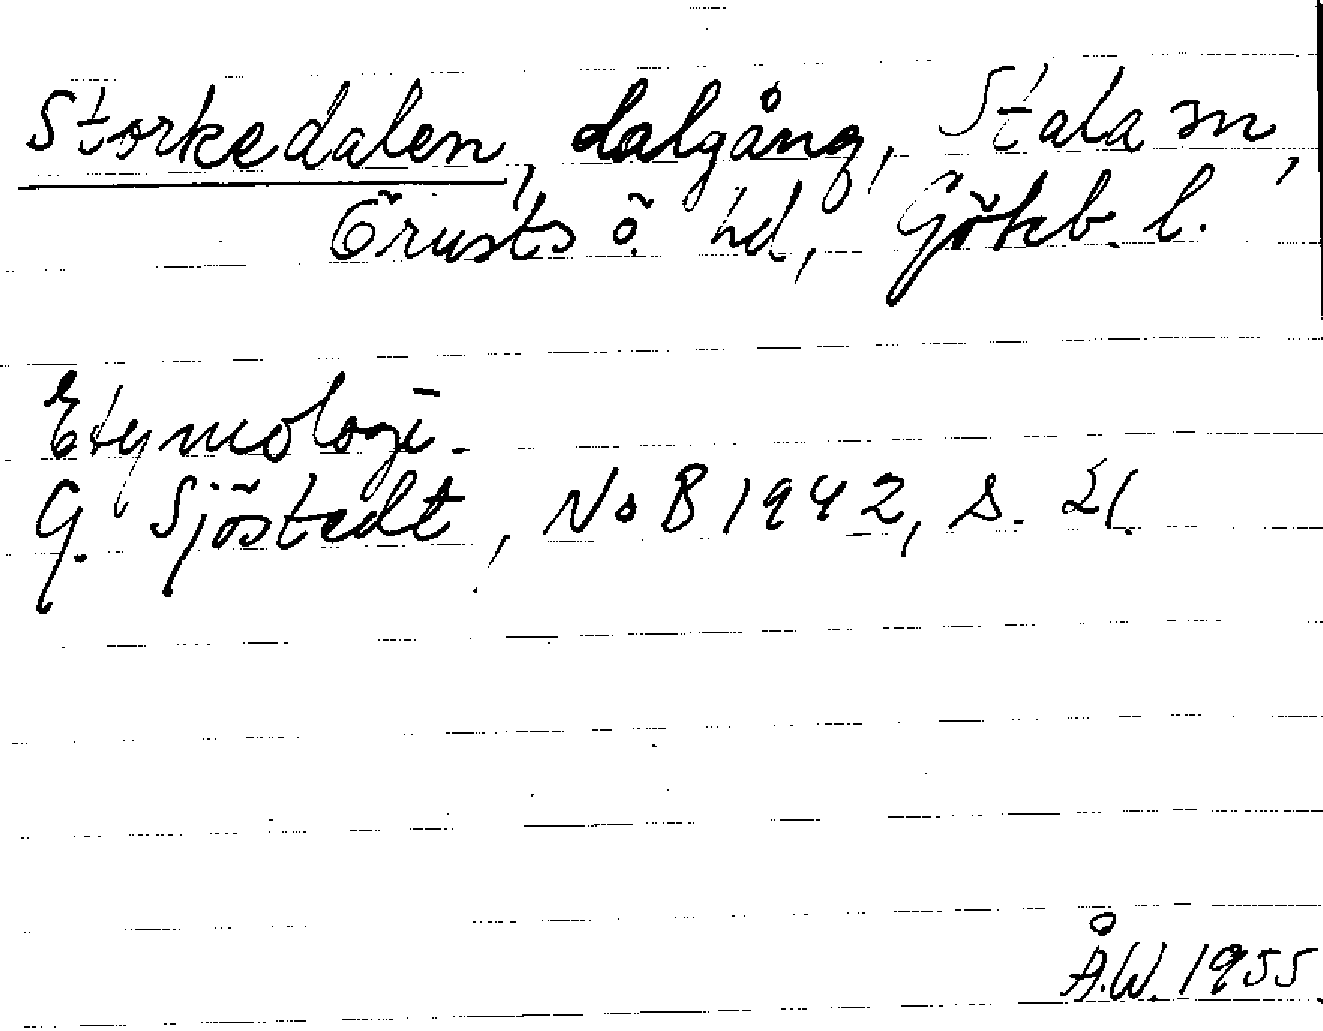 Storkedalen, dalgång, Stala sn,
Örusts ö. hd, Göteb. l.
Etymologi.
G. Sjöstedt, NoB 1942, s. 21.
Å.W. 1955.